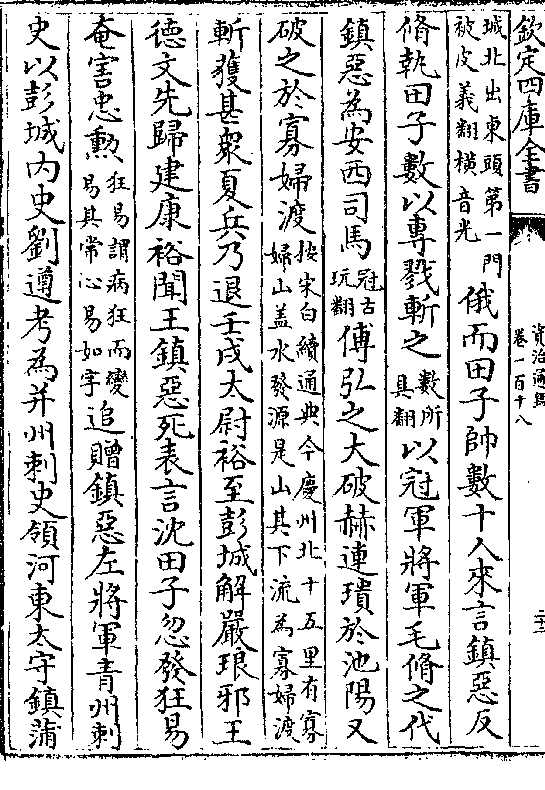 欽定四庫全書
資治通鑑
卷一百十八
二十一
城北出東頭第一門
被皮義翻橫音光
俄而田子帥數十人來言鎮惡反
脩執田子數以專戮斬之
數所
具翻
以冠軍將軍毛脩之代
鎮惡為安西司馬
冠古
玩翻
傅弘之大破赫連璝於池陽又
破之於寡婦渡
按宋白續通典今慶州北十五里有寡
婦山盖水發源是山其下流為寡婦渡
斬獲甚衆夏兵乃退壬戌太尉裕至彭城解嚴琅邪王
徳文先歸建康裕聞王鎮惡死表言沈田子忽發狂易
奄害忠勲
狂易謂病狂而變
易其常心易如字
追贈鎮惡左將軍青州刺
史以彭城内史劉遵考為并州刺史領河東太守鎮蒲